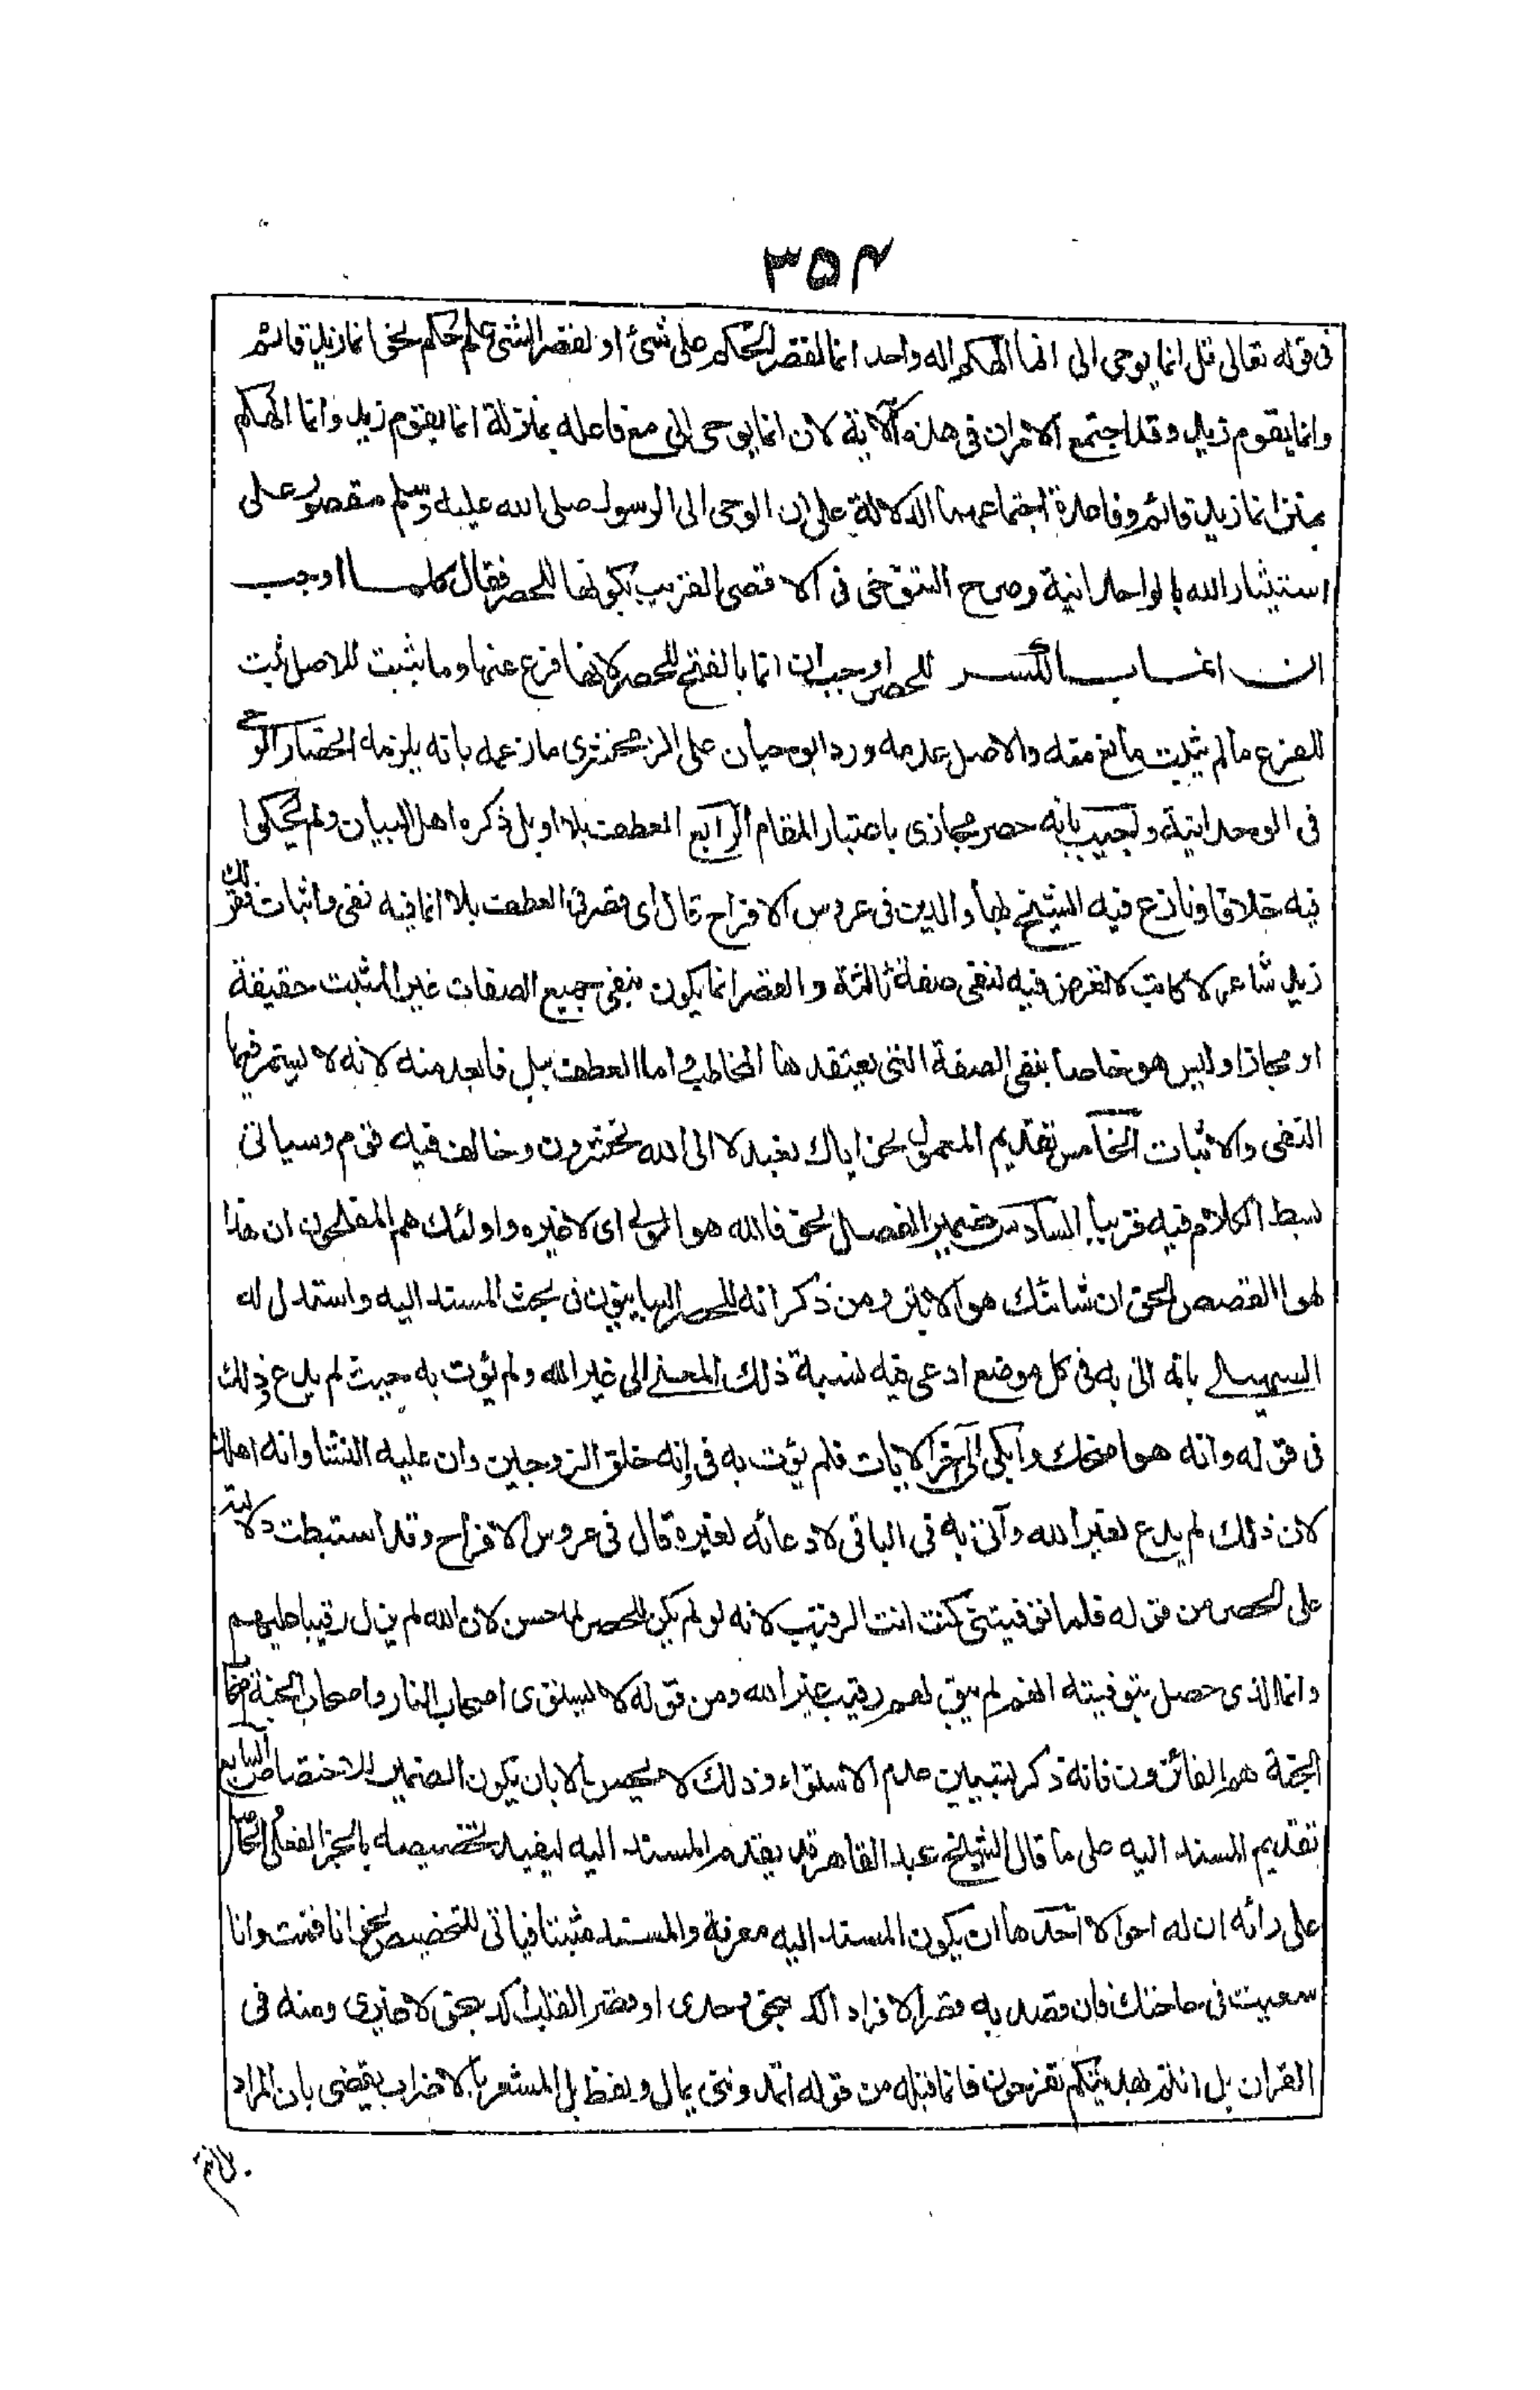 ٣٥٤
فى قوله تعالى قل انما يوحى الى انما الهكم اله واحد انما لقصر الحكم على شئ او لقصر الشئ على حكم نحو انما زيد قائم
وانما يقوم زيد وقد اجتمع الامران فى هذه الآية لان انما يوحى الى مع فاعله بمنزلة انما يقوم زيد وانما الهكم
بمنزلة انما زيد قائم وفائدة اجتماعهما الدلالة على ان الوحى الى الرسول صلى الله عليه وسلم مقصور على
استيثار الله بالواحدانية وصرح التنوخى فى الاقصى القريب بكونها للحصر فقال كلما اوجب
ان انما بالكسر للحصر اوجب ان انما بالفتح للحصر لانها فرع عنها وما ثبت للاصل ثبت
للفرع ما لم يثبت مانع منه والاصل عدمه ورد ابو حيان على الزمخشرى ما زعمه بانه يلزمه انحصار الوحى
فى الوحدانية واجيب بانه حصر مجازى باعتبار المقام الرابع العطف بلا او بل ذكره اهل البيان ولم يحكوا
فيه خلافا ونازع فيه الشيخ بهاء الدين فى عروس الافراح قال اى قصر فى العطف بلا انما فيه نفى واثبات فقولك
زيد شاعر لا كاتب لا تعرض فيه لنفى صفة ثالثة والقصر انما يكون بنفى جميع الصفات غير المثبت حقيقة
او مجازا وليس هو خاصا بنفى الصفة التى يعتقدها المخاطب واما العطف ببل فابعد منه لانه لا يستمر فيها
النفى والاثبات الخامس تقديم المعمول نحو اياك نعبد لا الى الله تحشرون وخالف فيه قوم وسياتى
بسط الكلام فيه قريبا السادس ضمير الفصل نحو فالله هو الولى اى لا غيره واولئك هم المفلحون ان هذا
لهو القصص الحق ان شانئك هو الابتر وممن ذكر انه للحصر البيانيون فى بحث المسند اليه واستدل له
السهيلى بانه اتى به فى كل موضع ادعى فيه نسبة ذلك المعنى الى غير الله ولم يؤت به حيث لم يدع وذلك
فى قوله وانه هو اضحك وابكى الى آخر الايات فلم يؤت به فى وانه خلق الزوجين وان عليه النشأ وانه اهلك
لان ذلك لم يدع لغير الله وأتى به فى الباقى لادعائه لغيره قال فى عروس الافراح وقد استنبطت دلالته
على الحصر من قوله فلما توفيتنى كنت انت الرقيب لانه لو لم يكن للحصر لما حسن لان الله لم يزل رقيبا عليهم
وانما الذى حصل بتوفيته انهم لم يبق لهم رقيب غير الله ومن قوله لا يستوى اصحاب النار واصحاب الجنة اصحاب
الجنة هم الفائزون فانه ذكر لتبيين عدم الاستواء وذلك لا يحسن الا بان يكون الضمير للاختصاص السابع
تقديم المسند اليه على ما قال الشيخ عبد القاهر قد يقدم المسند اليه ليفيد تخصيصه بالخبر الفعلى الحاصل
على رائه ان له احوالا احدها ان يكون المسند اليه معرفة والمسند مثبتا فياتى للتخصيص نحو انا قمت وانا
سعيت فى حاجتك فان قصد به قصر الافراد اكد بنحو وحدى او قصر القلب اكد بنحو لا غيرى ومنه فى
القران بل انتم بهديتكم تفرحون فانما قبله من قوله اتمدونن بمال ولفظ بل المشعر بالاضراب يقضى بان المراد